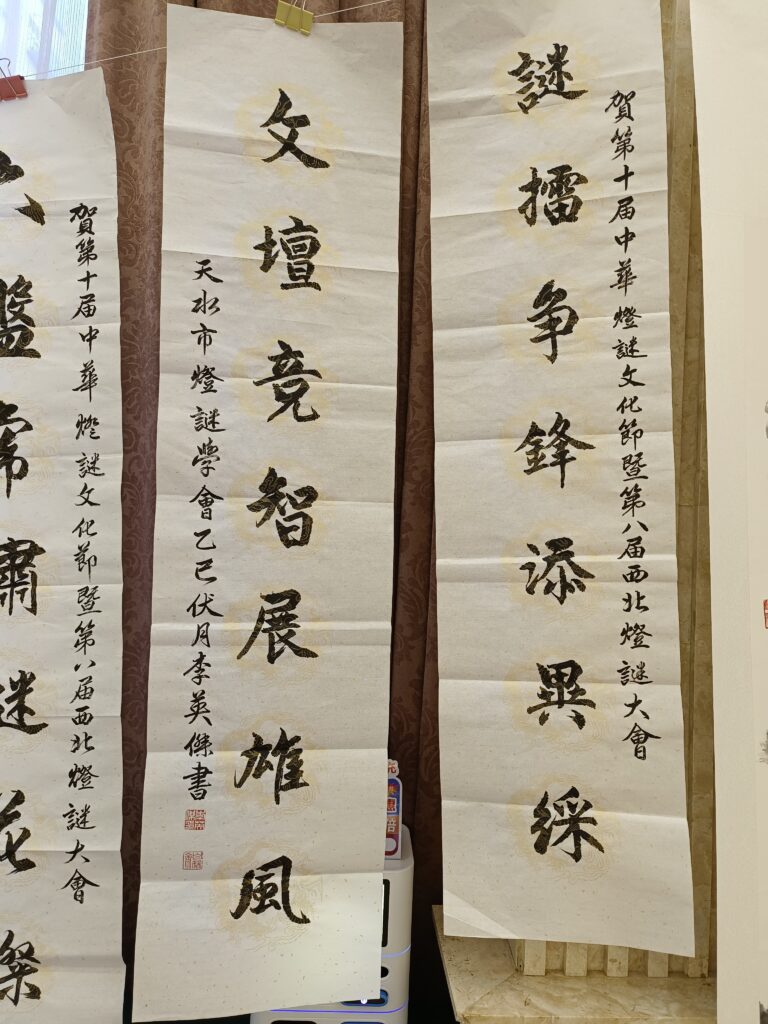 賀第十届中華燈謎文化節暨第八届西北燈謎大會
謎擂争鋒添異綵
文壇竞智展雄風
天水市燈謎學會乙巳伏月李英傑書
賀第十届中華燈謎文化節暨第八届西北燈謎大會